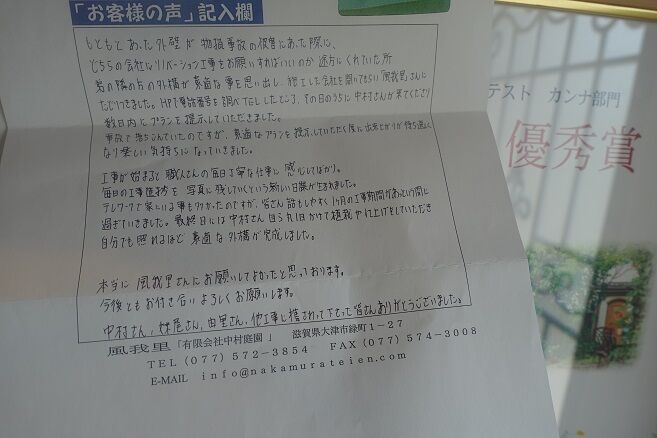 「お客様の声」記入欄
もともとあった外壁が物損事故の被害にあった際に、
どちらの会社にリノベーション工事をお願いすればいいのか途方にくれていた所
隣の方の外構が素適な事を思い出し、施工した会社を聞いてもらい「風我里」さんに
たどりつきました。HPで電話番号を調べTELしたところ、その日のうちに中村さんが来てくださり
数日内にプランを提示していただきました。
事故で落ちこんでいたのですが、素適なプランを提示していただく度に出来上がりが待ち遠しく
なり楽しい気持ちになっていきました。
工事が始まると職人さんの毎日丁寧な仕事に感心してばかり。
毎日の工事進捗を写真に残していくという新しい日課が生まれました。
テレワークで家にいる事も多かったのですが、皆さん話もしやすく1ヶ月の工事期間があっという間に
過ぎていきました。最終日には中村さん自ら1日かけて植栽や仕上げをしていただき
自分でも照れるほど素適な外構が完成しました。
本当に風我里さんにお願いしてよかったと思っております。
今後ともお付き合いよろしくお願いします。
中村さん、妹尾さん、由里さん、他工事に携されて下さった皆さんありがとうございました。
風我里「有限会社中村庭園」 滋賀県大津市緑町1-27
TEL(077)572-3854 FAX(077)574-3008
E-MAIL info@nakamurateien.com
テスト カンナ部門
優秀賞